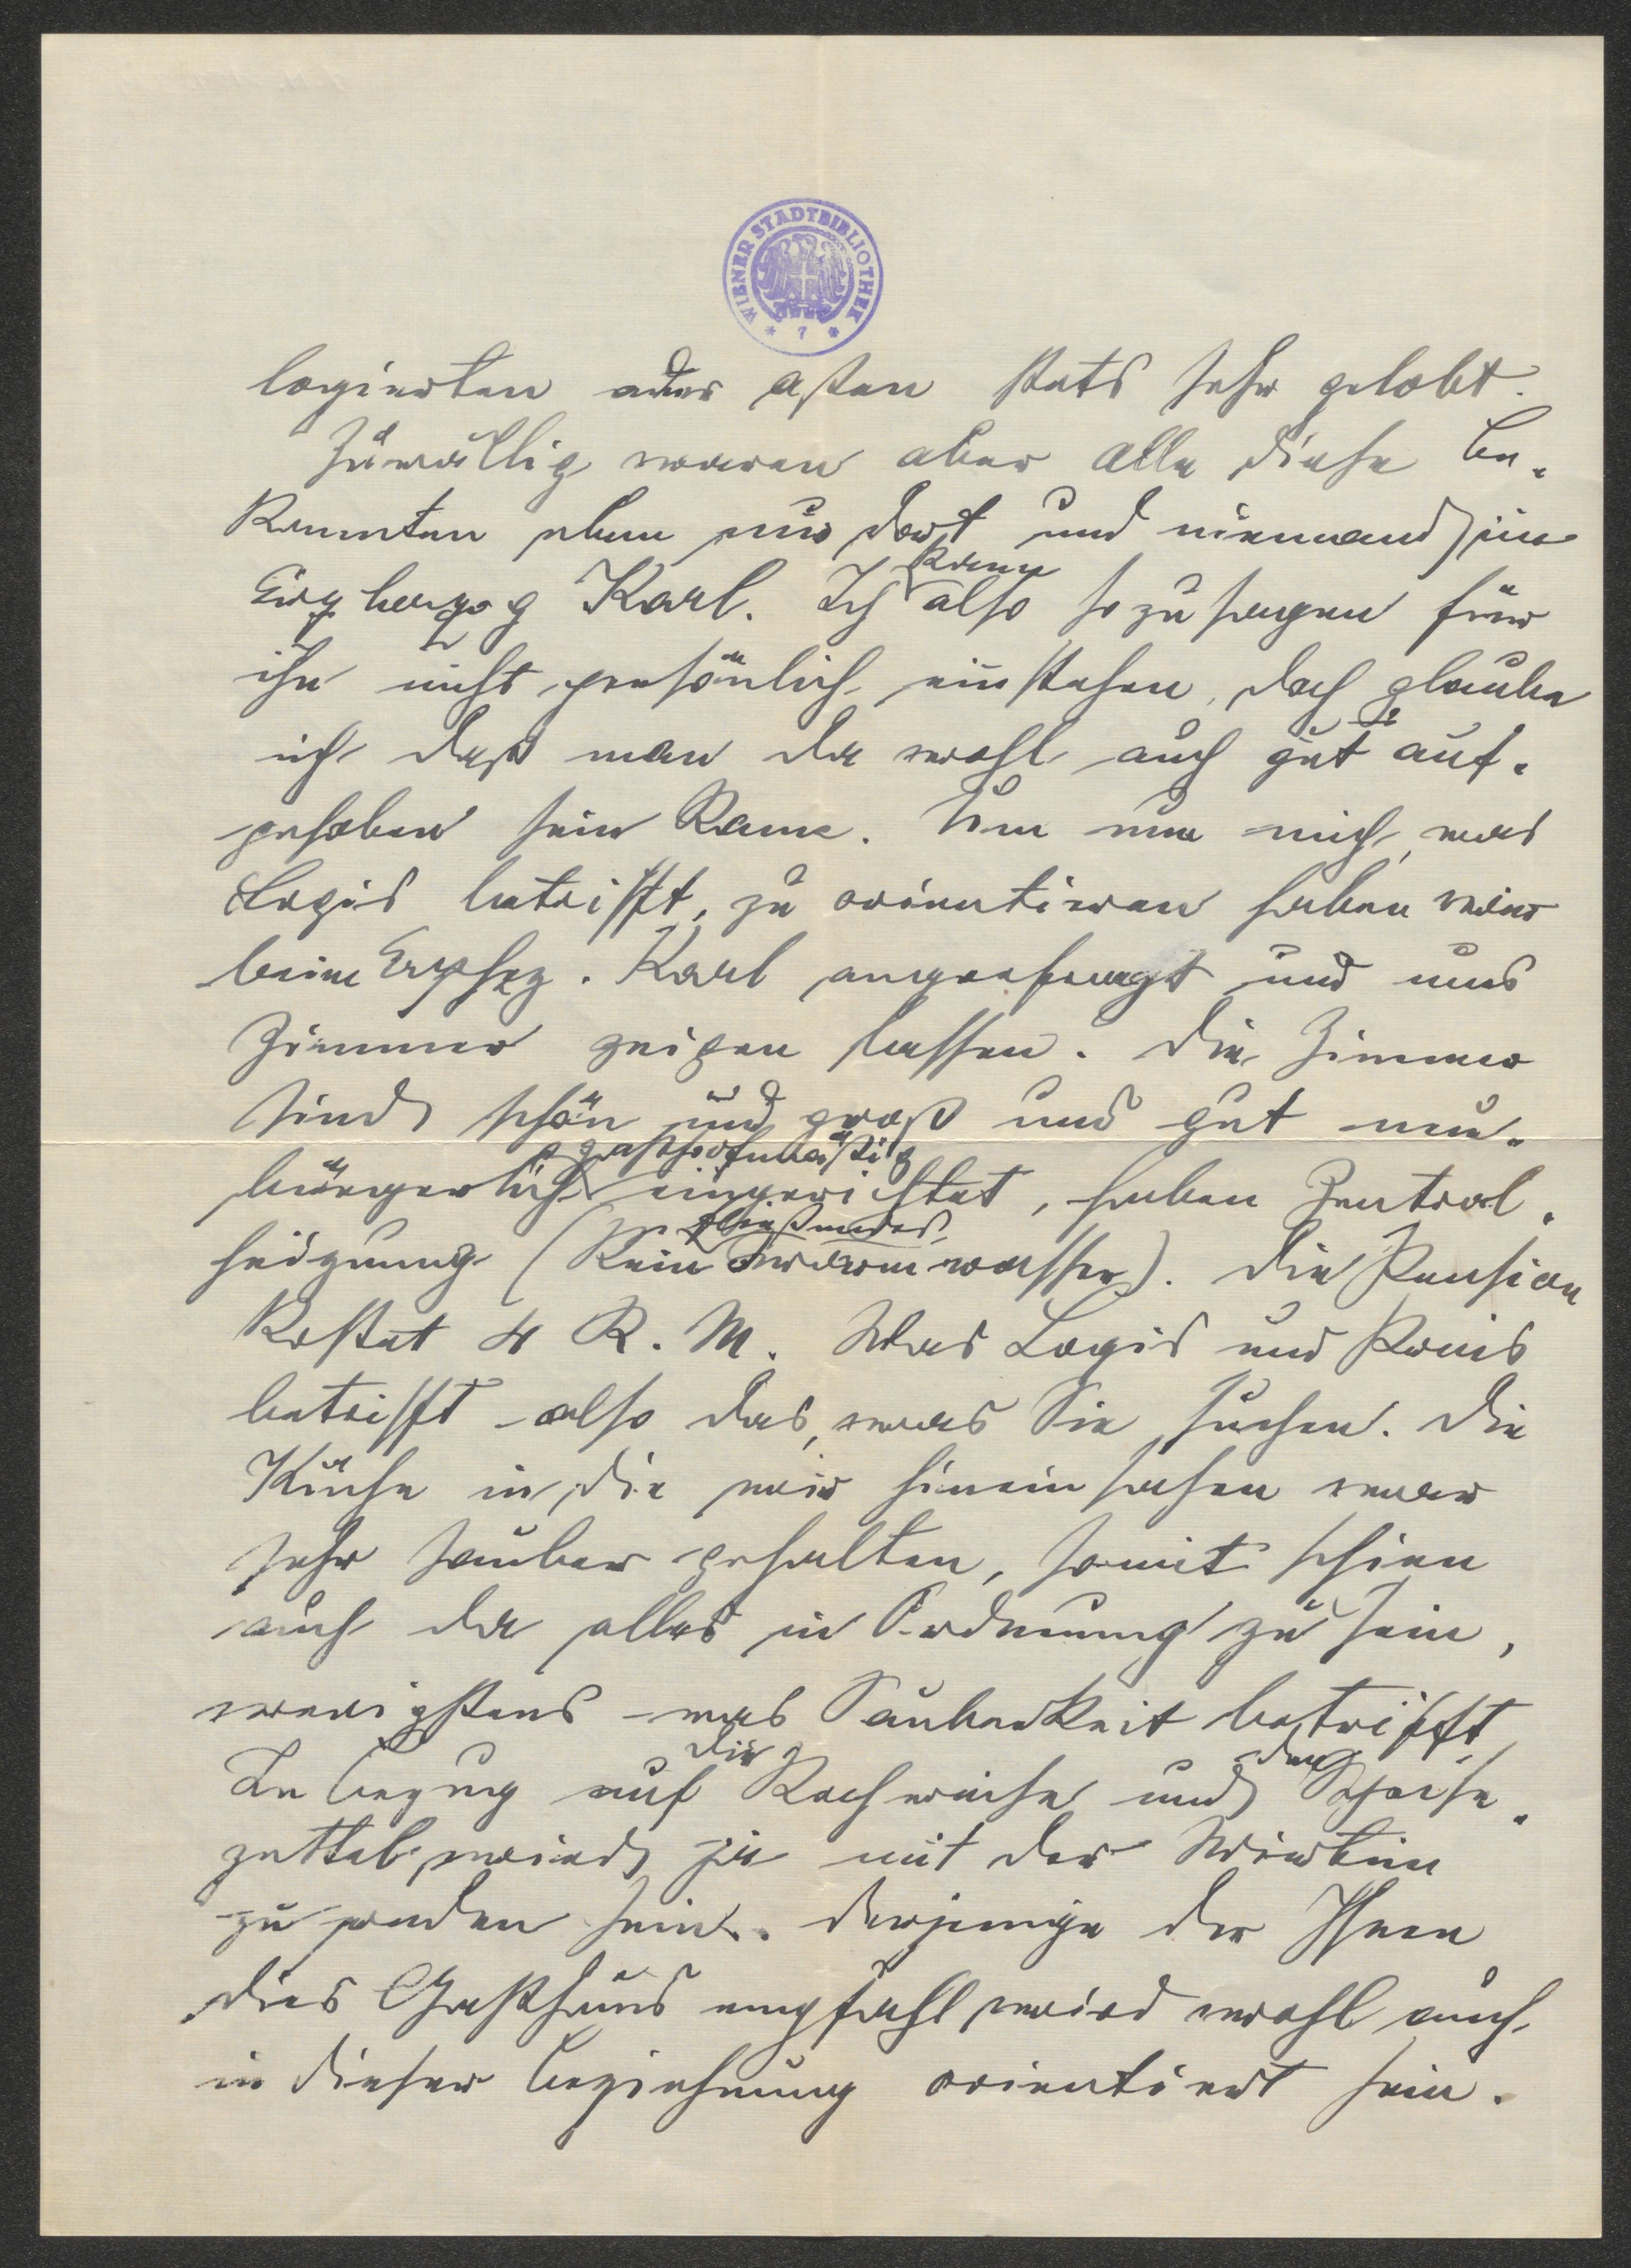 WIENER STADTBIBLIOTHEK
* 7 *
logierten oder assen stets sehr gelobt.
Zufällig waren aber alle diese Be-
kannten eben nur dort und niemand im
Erzherzog Karl. Ich kann also sozusagen für
ihn nicht persönlich einstehen, doch glaube
ich daß man da wohl auch gut auf-
gehoben sein kann. Um nun mich, was
Logis betrifft, zu orientieren haben wir
beim Erzhzg. Karl angefragt und uns
Zimmer zeigen lassen. Die Zimmer
sind schön und groß und gut neu-
bürgerlich gasthofmäßig eingerichtet, haben Zentral-
heizung (kein fließendes Warmwasser). Die Pension
kostet 4 R. M. Was Logis und Preis
betrifft also das, was Sie suchen. Die
Küche in die wir hineinsahen war
sehr sauber gehalten, somit schien
auch da alles in Ordnung zu sein,
wenigstens was Sauberkeit betrifft.
In Bezug auf die Kochweise und den Speise-
zettel wird ja mit der Wirtin
zu reden sein. Derjenige der Ihnen
dies Gasthaus empfahl wird wohl auch
in dieser Beziehung orientiert sein.